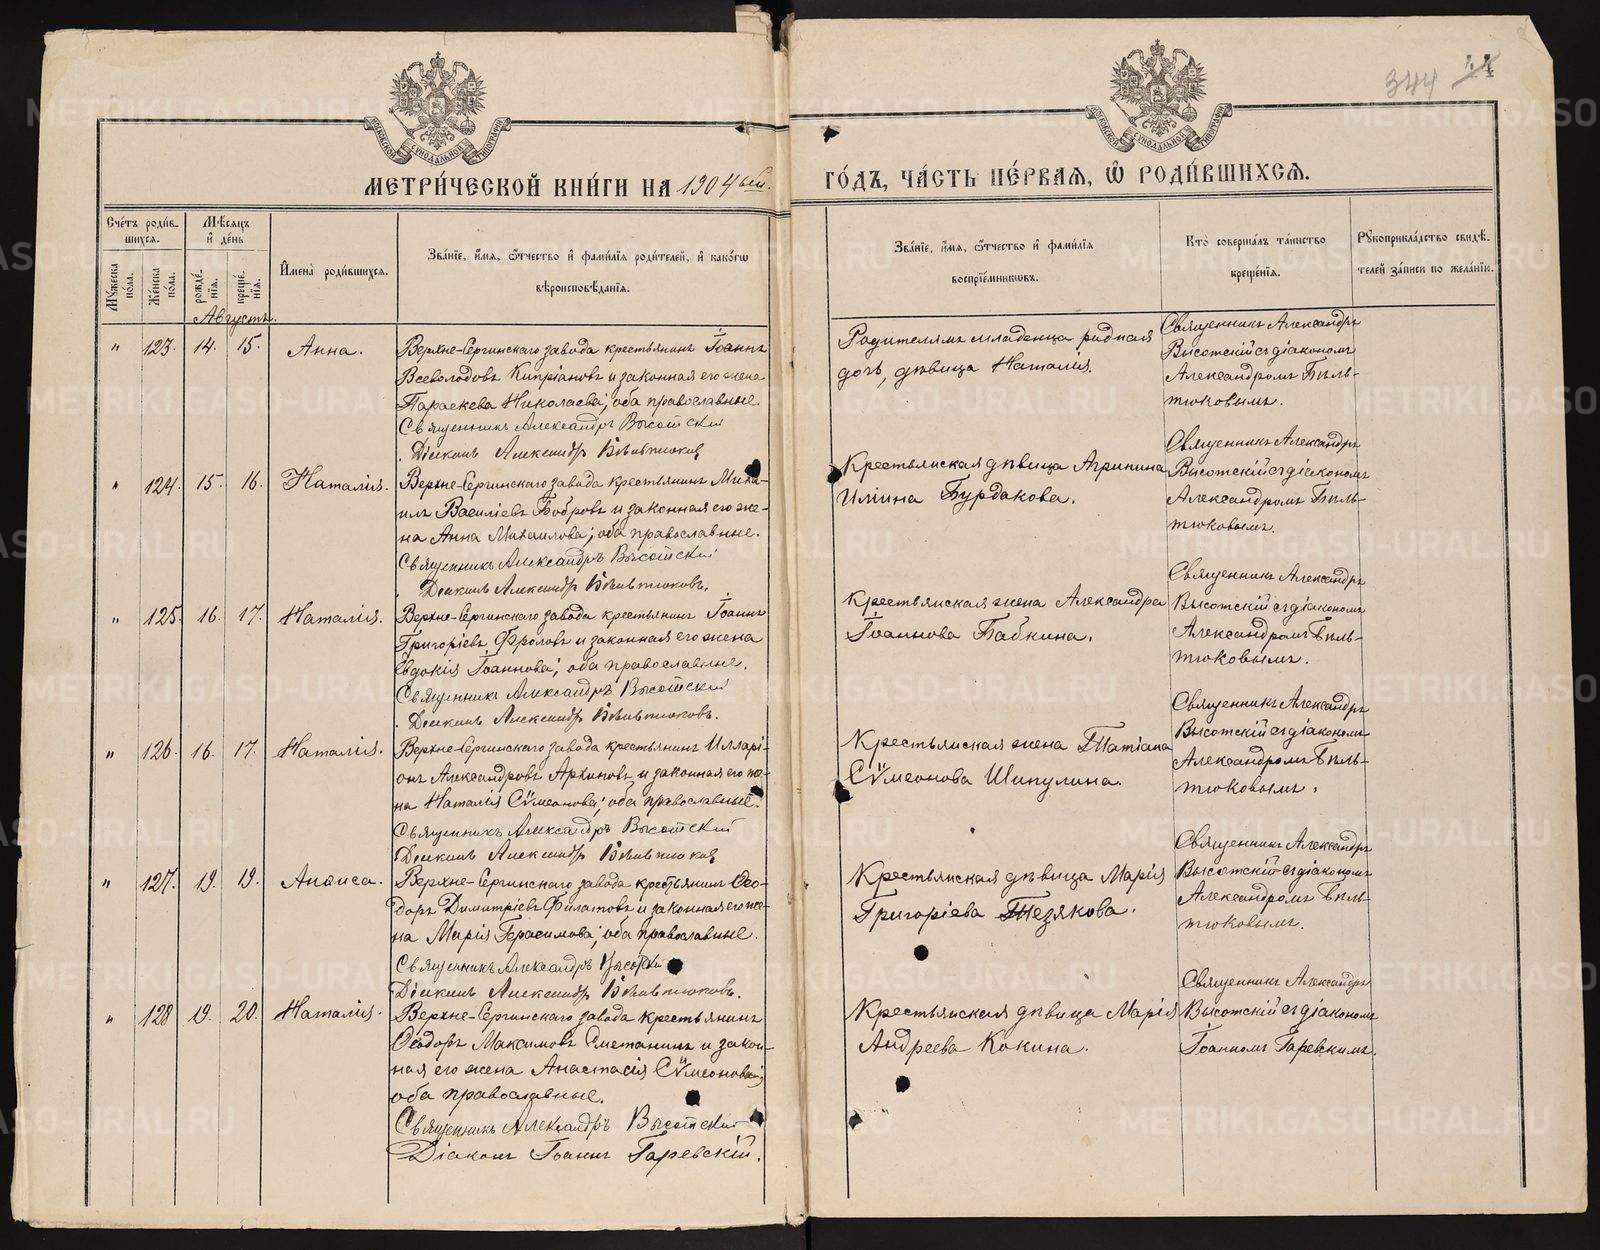 344
МОСКОВСКОЙ СѴНОДАЛЬНОЙ ТИПОГРАФИИ
МОСКОВСКОЙ СѴНОДАЛЬНОЙ ТИПОГРАФИИ
МЕТРИ́ЧЕСКОЙ КНИ́ГИ НА 1904ый.
ГО́ДЪ, ЧА́СТЬ ПЕ́РВАЯ, Ѡ҆ РОДИ́ВШИХСЯ.
Сче́тъ роди́в-
шихся.
Му́жеска пола.
Же́нска пола.
Мѣ́сяцъ
и҆ де́нь
рожде́-
нїя.
креще́-
нїя.
И҆мена̀ роди́вшихся.
Зва́нїе, и҆́мя, ѻ҆́тчество и҆ фами́лїя роди́телей, и҆ како́гѡ
вѣроисповѣ́данїя.
Зва́нїе, и҆́мя, ѻ҆́тчество и҆ фами́лїя
воспрїе́мникѡвъ.
Кто̀ соверша́лъ та́инство
креще́нїя.
Рꙋкоприкла́дство свидѣ́-
телей за́писи по жела́нїю.
Августъ.
" 123. 14. 15. Анна.
Верхне-Сергинскаго завода крестьянинъ Іоаннъ
Всеволодовъ Кипріановъ и законная его жена
Параскева Николаева; оба православные.
Священникъ Александръ Высотскій
Діаконъ Александръ Бѣльтюковъ
Родителямъ младенца родная
дочь, дѣвица Наталія.
Священникъ Александръ
Высотскій съ діакономъ
Александромъ Бѣль-
тюковымъ.
" 124. 15. 16. Наталія.
Верхне-Сергинскаго завода крестьянинъ Миха-
илъ Васильевъ Бобровъ и законная его же-
на Анна Михаилова; оба православные.
Священникъ Александръ Высотскій
Діаконъ Александръ Бѣльтюковъ.
Крестьянская дѣвица Агрипина
Иліина Бурдакова.
Священникъ Александръ
Высотскій съ діакономъ
Александромъ Бѣль-
тюковымъ.
" 125. 16. 17. Наталія.
Верхне-Сергинскаго завода крестьянинъ Іоаннъ
Григоріевъ Фроловъ и законная его жена
Евдокія Іоаннова; оба православные.
Священникъ Александръ Высотскій
Діаконъ Александръ Бѣльтюковъ.
Крестьянская жена Александра
Іоаннова Бабкина.
Священникъ Александръ
Высотскій съ діакономъ
Александромъ Бѣль-
тюковымъ.
" 126. 16. 17. Наталія.
Верхне-Сергинскаго завода крестьянинъ Иллорі-
онъ Александровъ Архиповъ и законная его же-
на Наталія Сѵмеонова; оба православные.
Священникъ Александръ Высотскій
Діаконъ Александръ Бѣльтюковъ
Крестьянская жена Татіана
Сѵмеонова Шипулина.
Священникъ Александръ
Высотскій съ діакономъ
Александромъ Бѣль-
тюковымъ.
" 127. 19. 19. Анфиса.
Верхне-Сергинскаго завода крестьянинъ Ѳео-
доръ Димитріевъ Филатовъ и законная его же-
на Марія Герасимова; оба православные.
Священникъ Александръ Высотскій
Діаконъ Александръ Бѣльтюковъ.
Крестьянская дѣвица Марія
Григоріева Тезякова.
Священникъ Александръ
Высотскій съ діакономъ
Александромъ Бѣль-
тюковымъ.
" 128 19. 20. Наталія.
Верхне-Сергинскаго завода крестьянинъ
Ѳеодоръ Максимовъ Сметанинъ и закон-
ная его жена Анастасія Сѵмеонова;
оба православные.
Священникъ Александръ Высотскій
Діаконъ Іоаннъ Гаревскій.
Крестьянская дѣвица Марія
Андреева Кокина.
Священникъ Александръ
Высотскій съ діакономъ
Іоанномъ Гаревскимъ.
METRIKI.GASO-URAL.RU